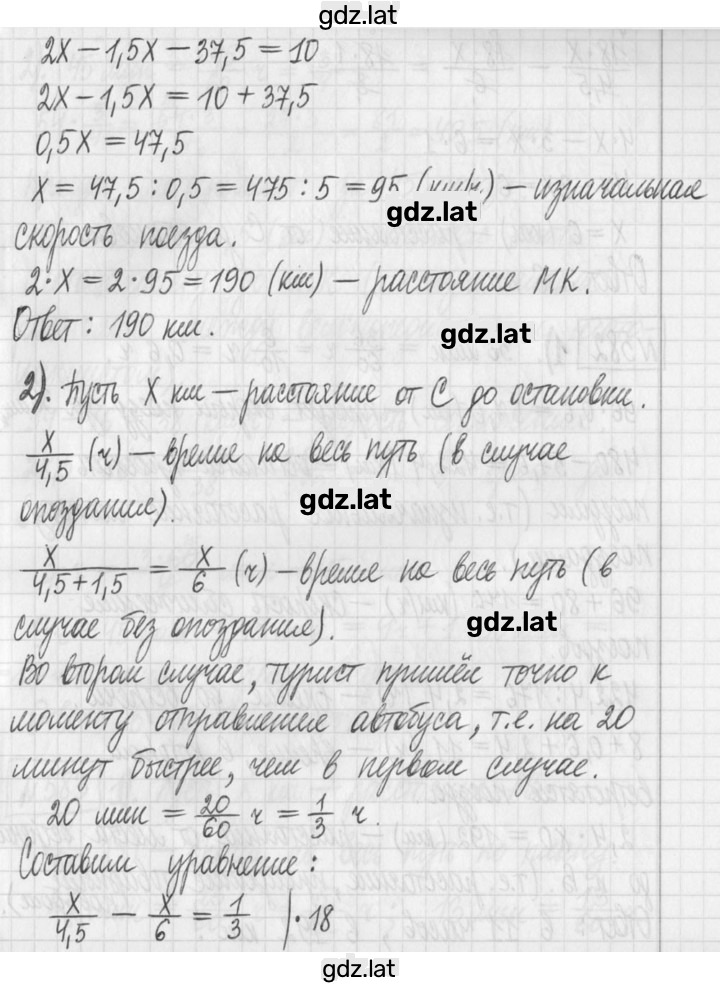 gdz.lat
2x − 1,5x − 37,5 = 10
2x − 1,5x = 10 + 37,5
0,5x = 47,5
x = 47,5 : 0,5 = 475 : 5 = 95 ( ) — изначальная
gdz.lat
скорость поезда.
2·x = 2·95 = 190 (км) — расстояние МК.
Ответ: 190 км.
gdz.lat
2). Пусть x км — расстояние от С до остановки.
x/4,5 (ч) — время на весь путь (в случае
gdz.lat
опоздания).
x/(4,5+1,5) = x/6 (ч) — время на весь путь (в
случае без опоздания).
gdz.lat
Во втором случае, турист пришёл точно к
моменту отправление автобуса, т.е. на 20
минут быстрее, чем в первом случае.
20 мин = 20/60 ч = 1/3 ч.
Составим уравнение:
x/4,5 − x/6 = 1/3 |·18
gdz.lat